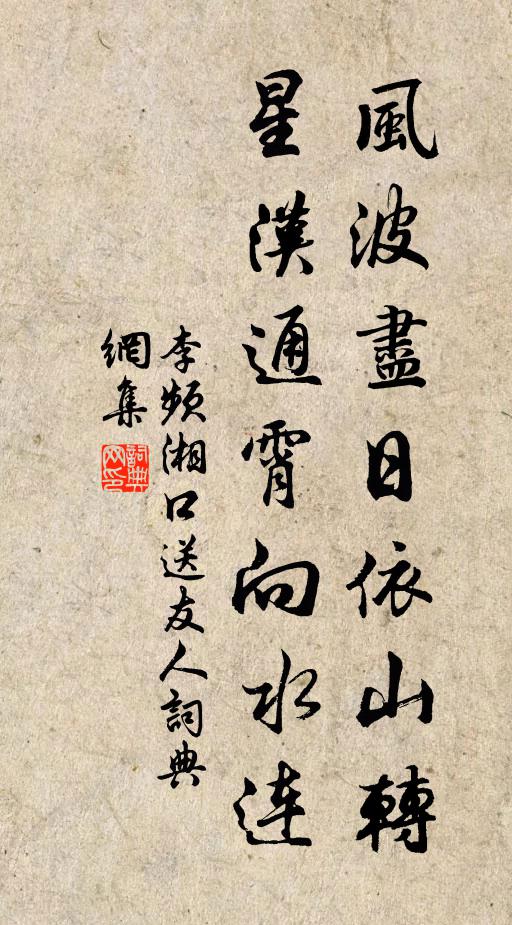 風波盡日依山轉
星漢通霄向水連
李頻湘口送友人詞典
網集
詞典
网印